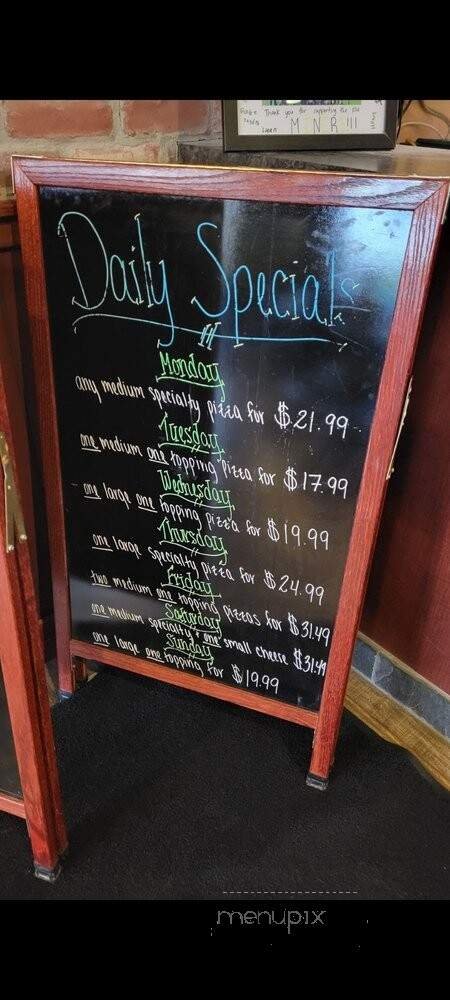 Thank you for supporting the
M N R !!!
Daily Specials
Monday
any medium specialty pizza for $21.99
Tuesday
one medium one topping pizza for $17.99
Wednesday
one large one topping pizza for $19.99
Thursday
one large specialty pizza for $24.99
Friday
two medium one topping pizzas for $31.49
Saturday
one medium specialty + one small cheese $31.49
Sunday
one large one topping for $19.99
menupix